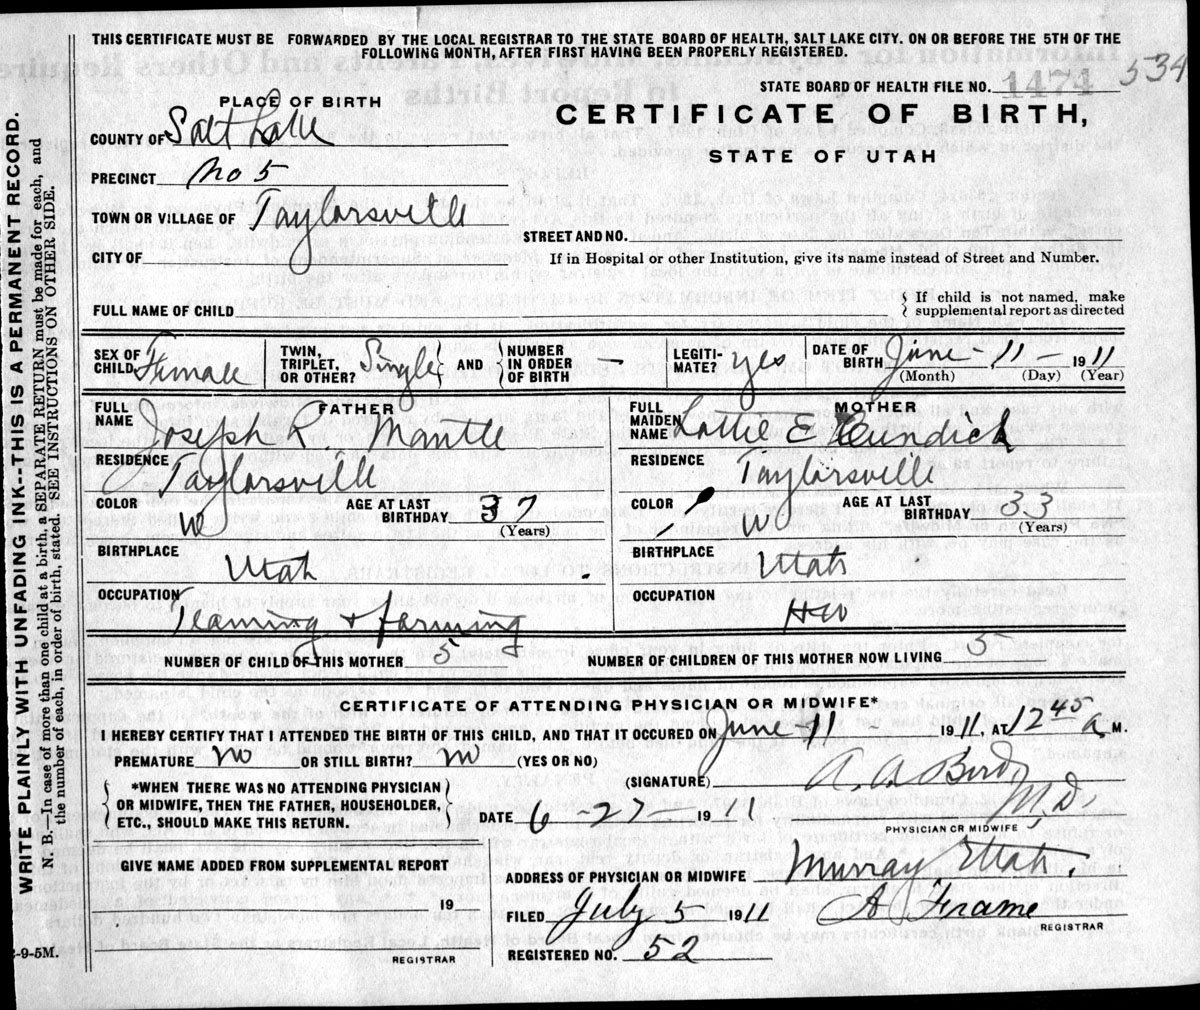 THIS CERTIFICATE MUST BE FORWARDED BY THE LOCAL REGISTRAR TO THE STATE BOARD OF HEALTH, SALT LAKE CITY. ON OR BEFORE THE 5TH OF THE
FOLLOWING MONTH, AFTER FIRST HAVING BEEN PROPERLY REGISTERED.
534
STATE BOARD OF HEALTH FILE NO. 1474
PLACE OF BIRTH
CERTIFICATE OF BIRTH,
COUNTY OF Salt Lake
STATE OF UTAH
PRECINCT No 5
TOWN OR VILLAGE OF Taylorsville
STREET AND NO.
CITY OF
If in Hospital or other Institution, give its name instead of Street and Number.
FULL NAME OF CHILD
If child is not named, make
supplemental report as directed
SEX OF CHILD Female
TWIN, TRIPLET, OR OTHER? Single AND NUMBER IN ORDER OF BIRTH —
LEGITIMATE? yes
DATE OF BIRTH June - 11 - 1911
(Month) (Day) (Year)
FATHER
FULL NAME Joseph R. Mantle
MOTHER
FULL MAIDEN NAME Lottie E
RESIDENCE Taylorsville
RESIDENCE Taylorsville
COLOR W
AGE AT LAST BIRTHDAY 37
(Years)
COLOR W
AGE AT LAST BIRTHDAY 33
(Years)
BIRTHPLACE Utah
BIRTHPLACE Utah
OCCUPATION Teaming & farming
OCCUPATION HW
NUMBER OF CHILD OF THIS MOTHER 5
NUMBER OF CHILDREN OF THIS MOTHER NOW LIVING 5
CERTIFICATE OF ATTENDING PHYSICIAN OR MIDWIFE*
I HEREBY CERTIFY THAT I ATTENDED THE BIRTH OF THIS CHILD, AND THAT IT OCCURED ON June - 11 - 1911, AT 12 45 a M.
PREMATURE No OR STILL BIRTH? no (YES OR NO)
*WHEN THERE WAS NO ATTENDING PHYSICIAN
OR MIDWIFE, THEN THE FATHER, HOUSEHOLDER,
ETC., SHOULD MAKE THIS RETURN.
(SIGNATURE) Bird, M.D.
DATE 6 - 27 - 1911
PHYSICIAN OR MIDWIFE
GIVE NAME ADDED FROM SUPPLEMENTAL REPORT
19
REGISTRAR
ADDRESS OF PHYSICIAN OR MIDWIFE Murray Utah.
FILED July 5 1911
REGISTRAR
REGISTERED NO. 52
2-9-5M.
WRITE PLAINLY WITH UNFADING INK--THIS IS A PERMANENT RECORD.
N. B.—In case of more than one child at a birth, a SEPARATE RETURN must be made for each, and
the number of each, in order of birth, stated. SEE INSTRUCTIONS ON OTHER SIDE.